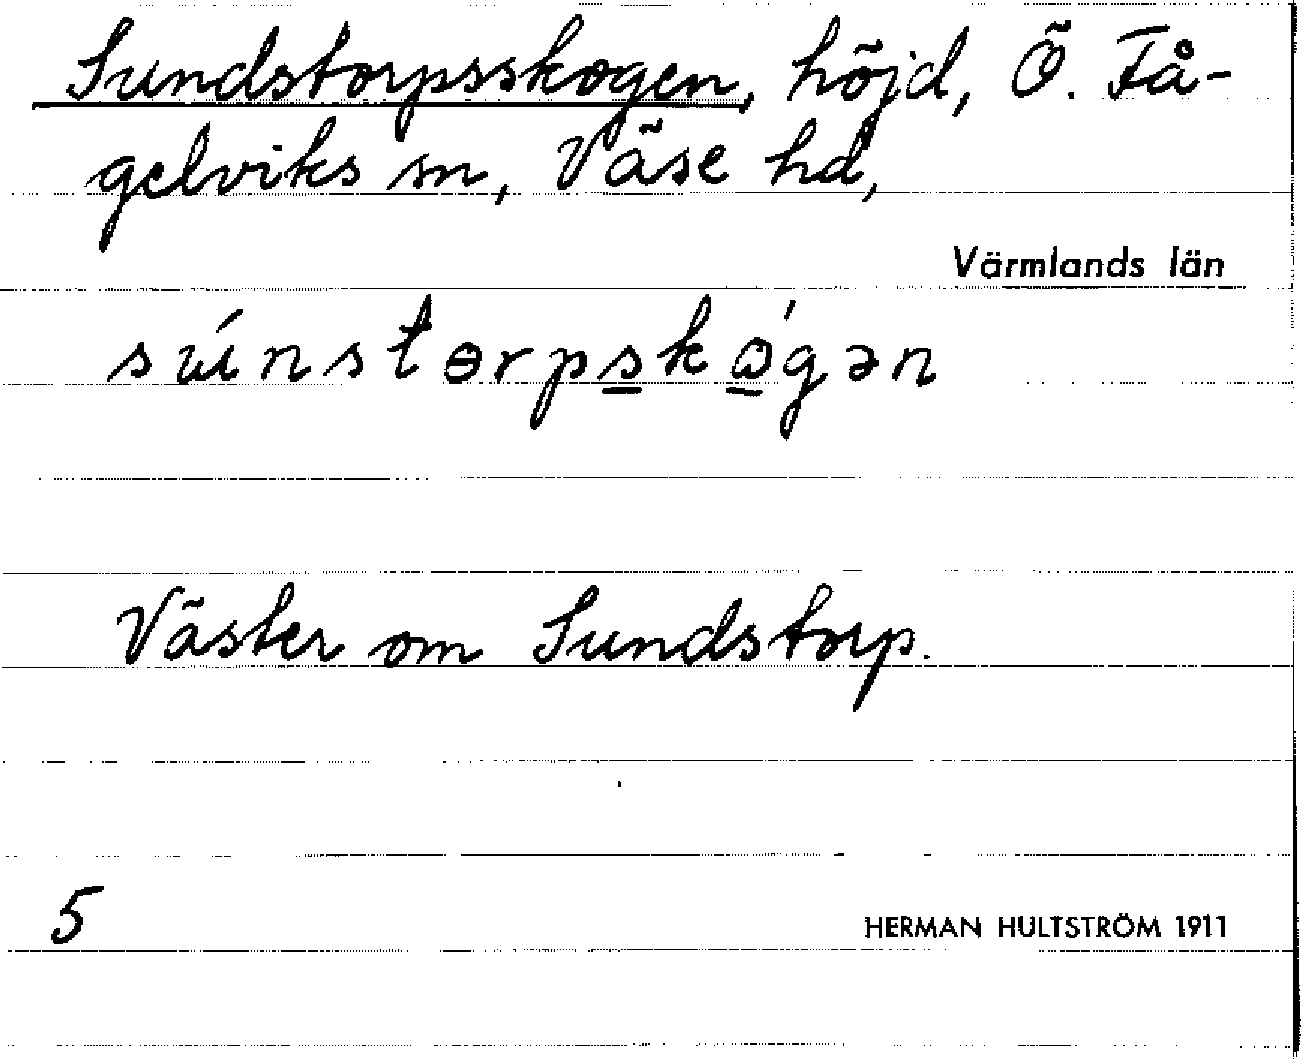 Sundstorpsskogen, höjd, Ö. Få-
gelviks sn, Väse hd,
Värmlands län
Väster om Sundstorp.
5
HERMAN HULTSTRÖM 1911